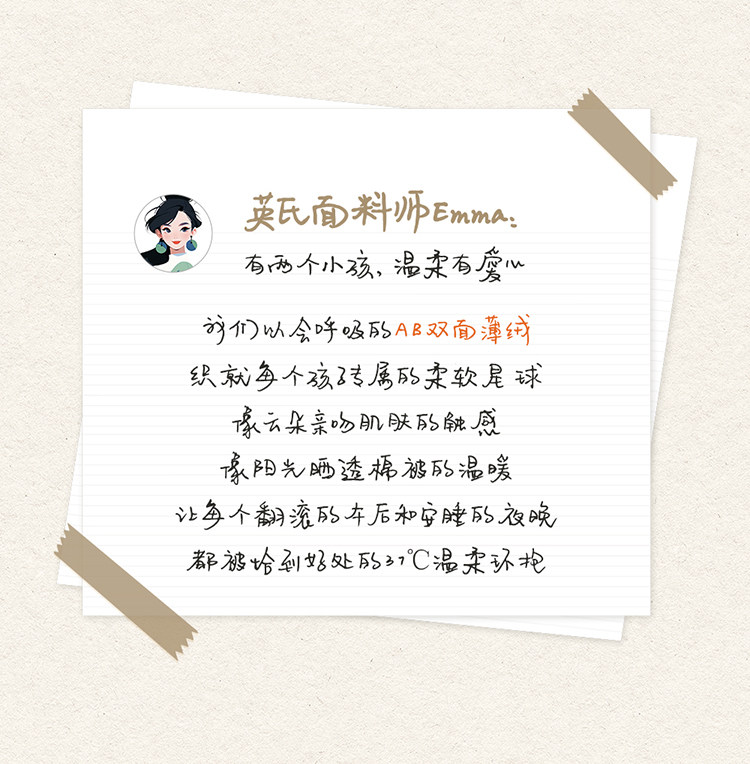 英氏面料师Emma:
有两个小孩、温柔有爱心
我们以会呼吸的AB双面薄绒
织就每个孩子专属的柔软星球
像云朵亲吻肌肤的触感
像阳光晒透棉被的温暖
让每个翻滚的午后和安睡的夜晚
都被恰到好处的37℃温柔环抱